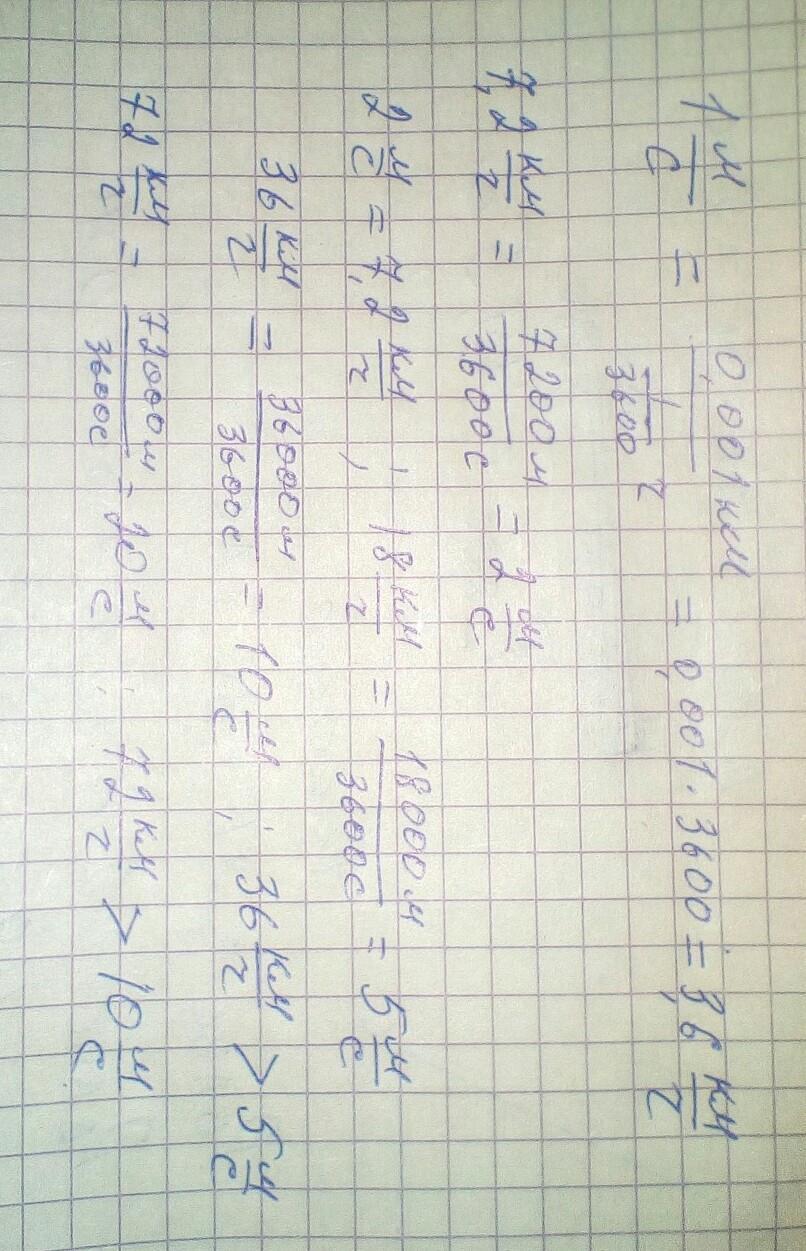 1 м/с = 0,001 км / 1/3600 г = 0,001 · 3600 = 3,6 км/г
7,2 км/г = 7200 м / 3600 с = 2 м/с
2 м/с = 7,2 км/г ; 18 км/г = 18000 м / 3600 с = 5 м/с
36 км/г = 36000 м / 3600 с = 10 м/с ; 36 км/г > 5 м/с
72 км/г = 72000 м / 3600 с = 20 м/с ; 72 км/г > 10 м/с